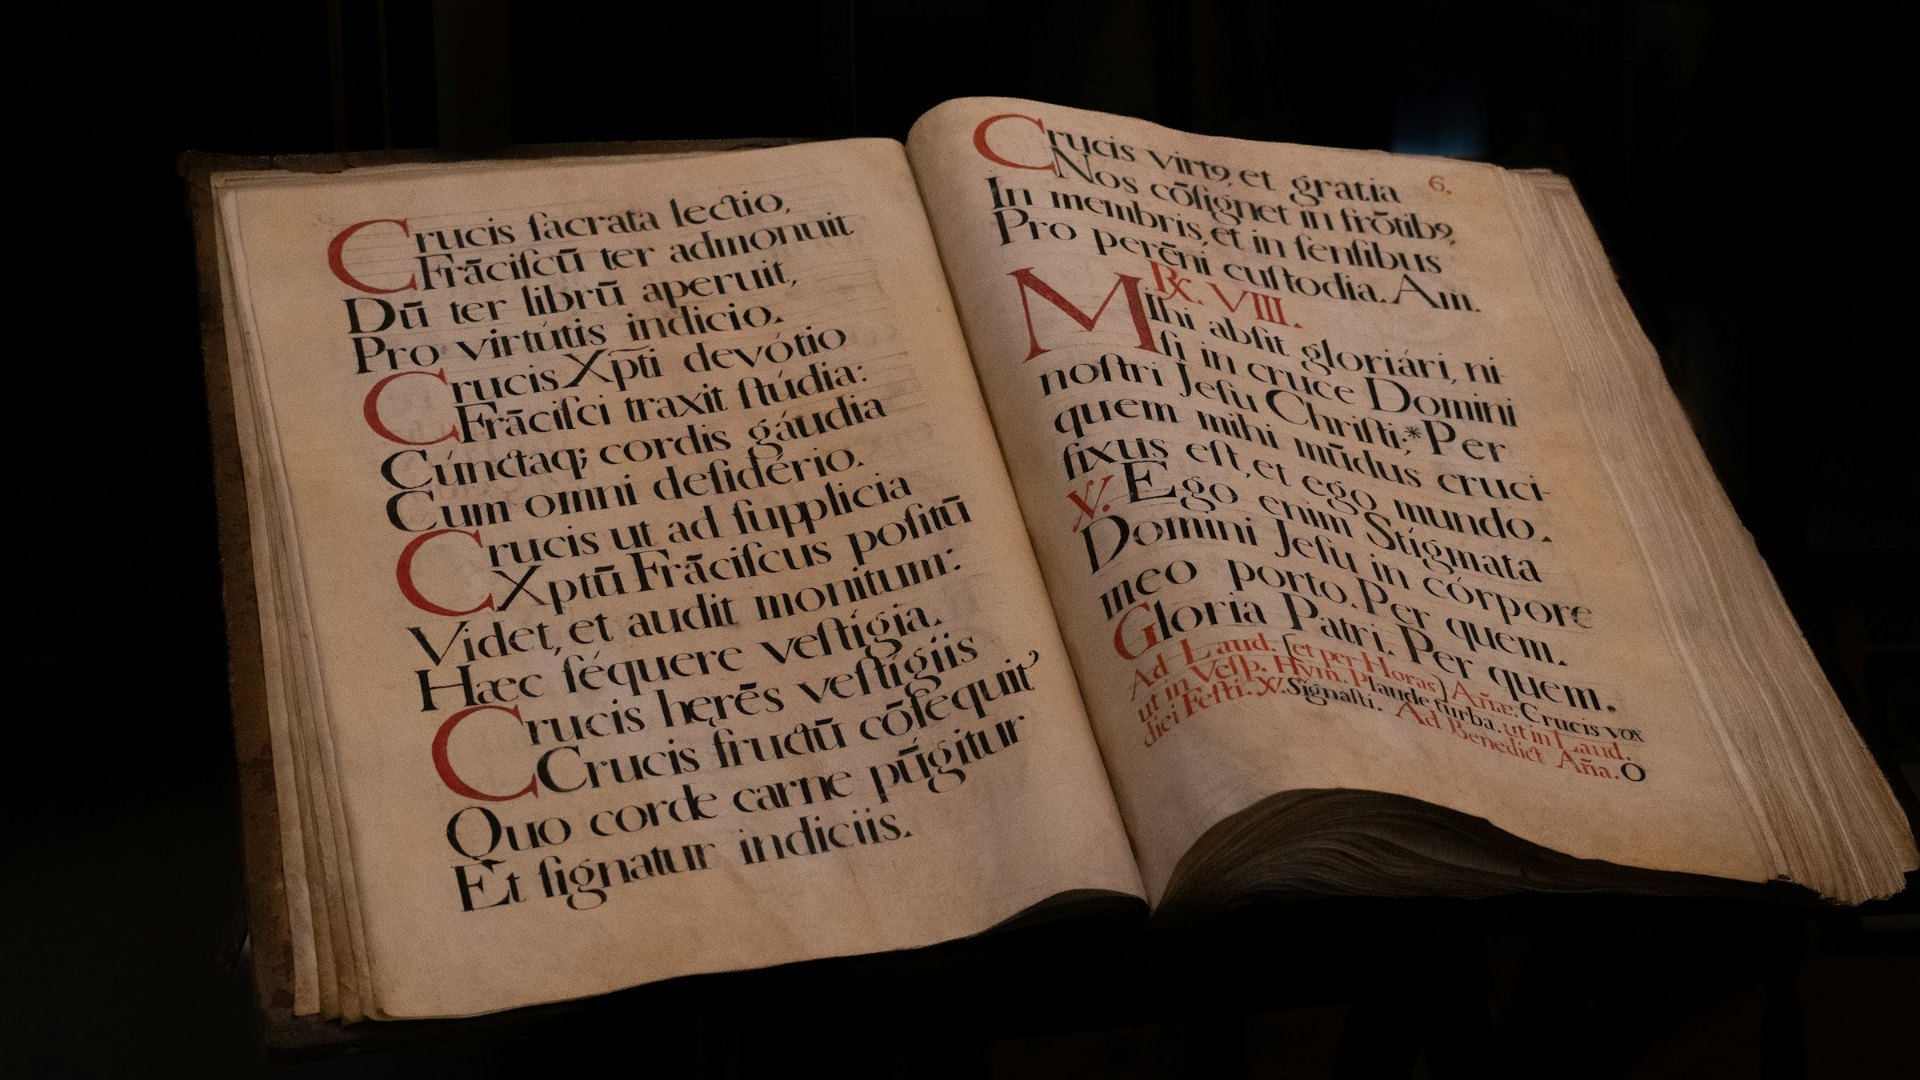 Crucis ſacrata lectio,
Frāciſcū ter admonuit
Dū ter librū aperuit,
Pro virtútis indicio.
Crucis Xp̄ti devótio
Frāciſci traxit ſtúdia:
Cúnctaq; cordis gáudia
Cum omni deſidério.
Crucis ut ad ſupplicia
Xptū Frāciſcus poſitū
Videt, et audit monitum:
Hæc ſéquere veſtígia.
Crucis herēs veſtigiis
Crucis fructū cōſequit'
Quo corde carne pūgitur
Et ſignatur indiciis.
Crucis virtꝰ, et gratia 6.
Nos cōſignet in frōtibꝰ,
In membris, et in ſenſibus
Pro perēni cuſtodia. Am.
℞. VIII.
Mihi abſit gloriári, ni-
ſi in cruce Domini
noſtri Jeſu Chriſti;* Per
quem mihi mūdus cruci-
fixus eſt, et ego mundo.
℣. Ego enim Stígmata
Domini Jeſu in córpore
meo porto. Per quem.
Gloria Patri. Per quem.
Ad Laud. (et per Horas) Añæ. Crucis vox
ut in Veſp. Hym. Plaude turba. ut in Laud.
diei Feſti. ℣. Signaſti. Ad Benedict Aña. O